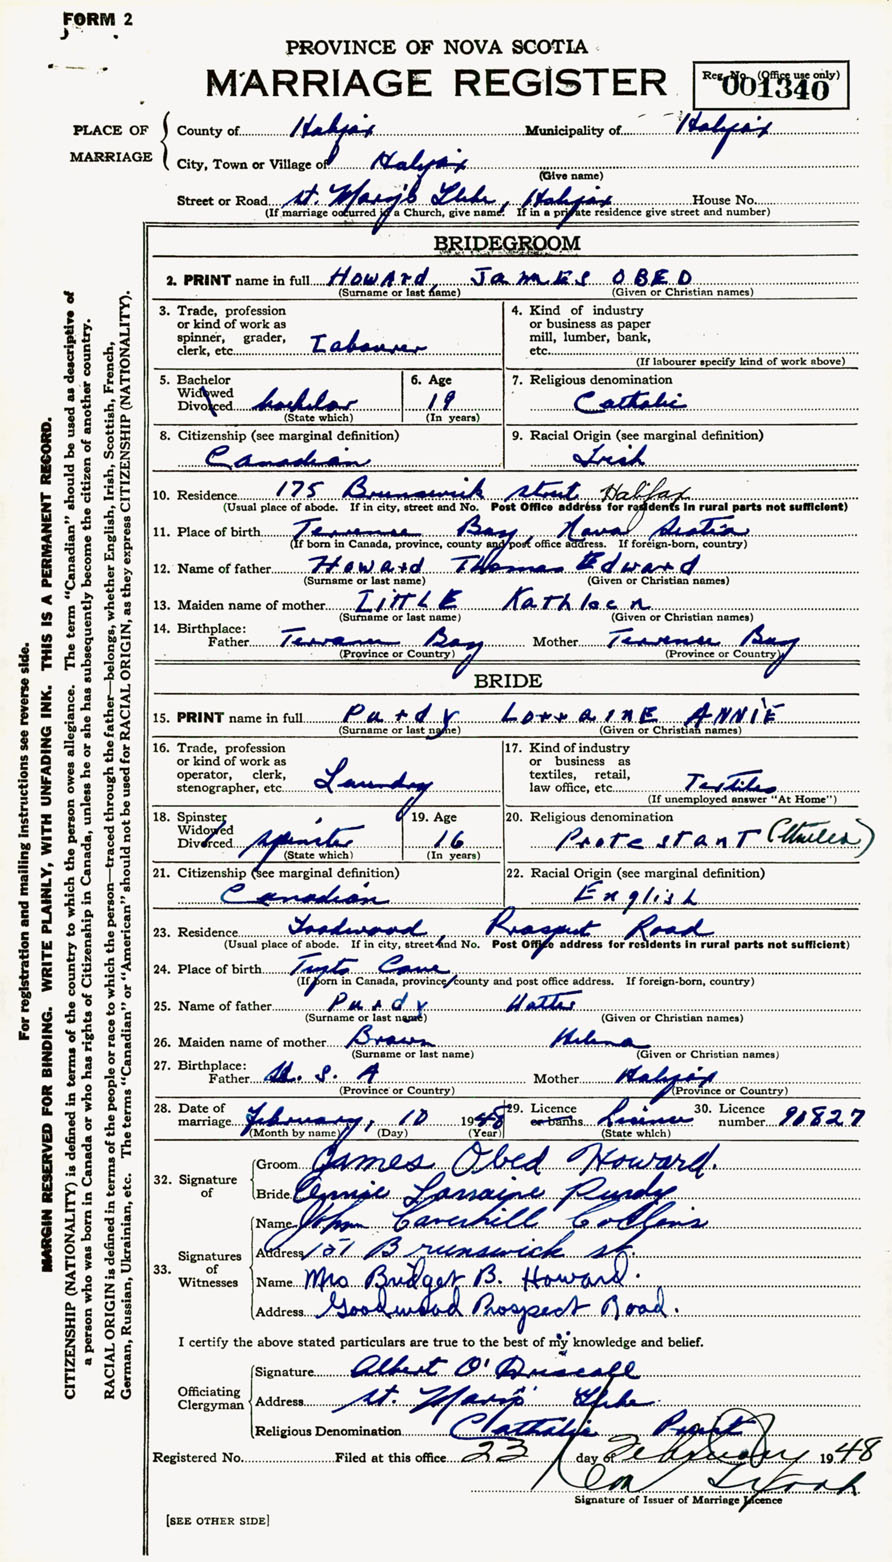 FORM 2
PROVINCE OF NOVA SCOTIA
MARRIAGE REGISTER
Reg. No. (Office use only)
001340
PLACE OF MARRIAGE
County of Halifax Municipality of Halifax
City, Town or Village of Halifax
(Give name)
Street or Road St. Mary's Glebe, Halifax House No.
(If marriage occurred in a Church, give name. If in a private residence give street and number)
BRIDEGROOM
2. PRINT name in full Howard, JAMES OBED
(Surname or last name) (Given or Christian names)
3. Trade, profession or kind of work as spinner, grader, clerk, etc. Labourer
4. Kind of industry or business as paper mill, lumber, bank, etc.
(If labourer specify kind of work above)
5. Bachelor Widowed Divorced bachelor
(State which)
6. Age 19
(In years)
7. Religious denomination Catholic
8. Citizenship (see marginal definition) Canadian
9. Racial Origin (see marginal definition) Irish
10. Residence 175 Brunswick street Halifax
(Usual place of abode. If in city, street and No. Post Office address for residents in rural parts not sufficient)
11. Place of birth Terrence Bay, Nova Scotia
(If born in Canada, province, county and post office address. If foreign-born, country)
12. Name of father Howard Thomas Edward
(Surname or last name) (Given or Christian names)
13. Maiden name of mother LITTLE Kathleen
(Surname or last name) (Given or Christian names)
14. Birthplace:
Father Bay Mother Terrence Bay
(Province or Country) (Province or Country)
BRIDE
15. PRINT name in full Purdy LorraINE ANNIE
(Surname or last name) (Given or Christian names)
16. Trade, profession or kind of work as operator, clerk, stenographer, etc. Laundry
17. Kind of industry or business as textiles, retail, law office, etc. Textiles
(If unemployed answer "At Home")
18. Spinster Widowed Divorced spinster
(State which)
19. Age 16
(In years)
20. Religious denomination Protestant
21. Citizenship (see marginal definition) Canadian
22. Racial Origin (see marginal definition) English
23. Residence Goodwood, Prospect Road
(Usual place of abode. If in city, street and No. Post Office address for residents in rural parts not sufficient)
24. Place of birth Cove
(If born in Canada, province, county and post office address. If foreign-born, country)
25. Name of father Purdy
(Surname or last name) (Given or Christian names)
26. Maiden name of mother Brown Helena
(Surname or last name) (Given or Christian names)
27. Birthplace:
Father U. S. A Mother Halifax
(Province or Country) (Province or Country)
28. Date of marriage February, 10 1948
(Month by name) (Day) (Year)
29. Licence or banns
(State which)
30. Licence number 90827
32. Signature of
Groom James Obed Howard.
Bride Annie Lorraine Purdy
33. Signatures of Witnesses
Name John Caverhill Collins
Address 151 Brunswick st.
Name Mrs Bridget B. Howard.
Address Goodwood Prospect Road.
I certify the above stated particulars are true to the best of my knowledge and belief.
Officiating Clergyman
Signature Albert O'Driscoll
Address St. Mary's Glebe
Religious Denomination Catholic Priest
Registered No. Filed at this office 23 day of February 1948
Signature of Issuer of Marriage Licence
[SEE OTHER SIDE]
For registration and mailing instructions see reverse side.
MARGIN RESERVED FOR BINDING. WRITE PLAINLY, WITH UNFADING INK. THIS IS A PERMANENT RECORD.
CITIZENSHIP (NATIONALITY) is defined in terms of the country to which the person owes allegiance. The term "Canadian" should be used as descriptive of
a person who was born in Canada or who has rights of Citizenship in Canada, unless he or she has subsequently become the citizen of another country.
RACIAL ORIGIN is defined in terms of the people or race to which the person—traced through the father—belongs, whether English, Irish, Scottish, French,
German, Russian, Ukrainian, etc. The terms "Canadian" or "American" should not be used for RACIAL ORIGIN, as they express CITIZENSHIP (NATIONALITY).